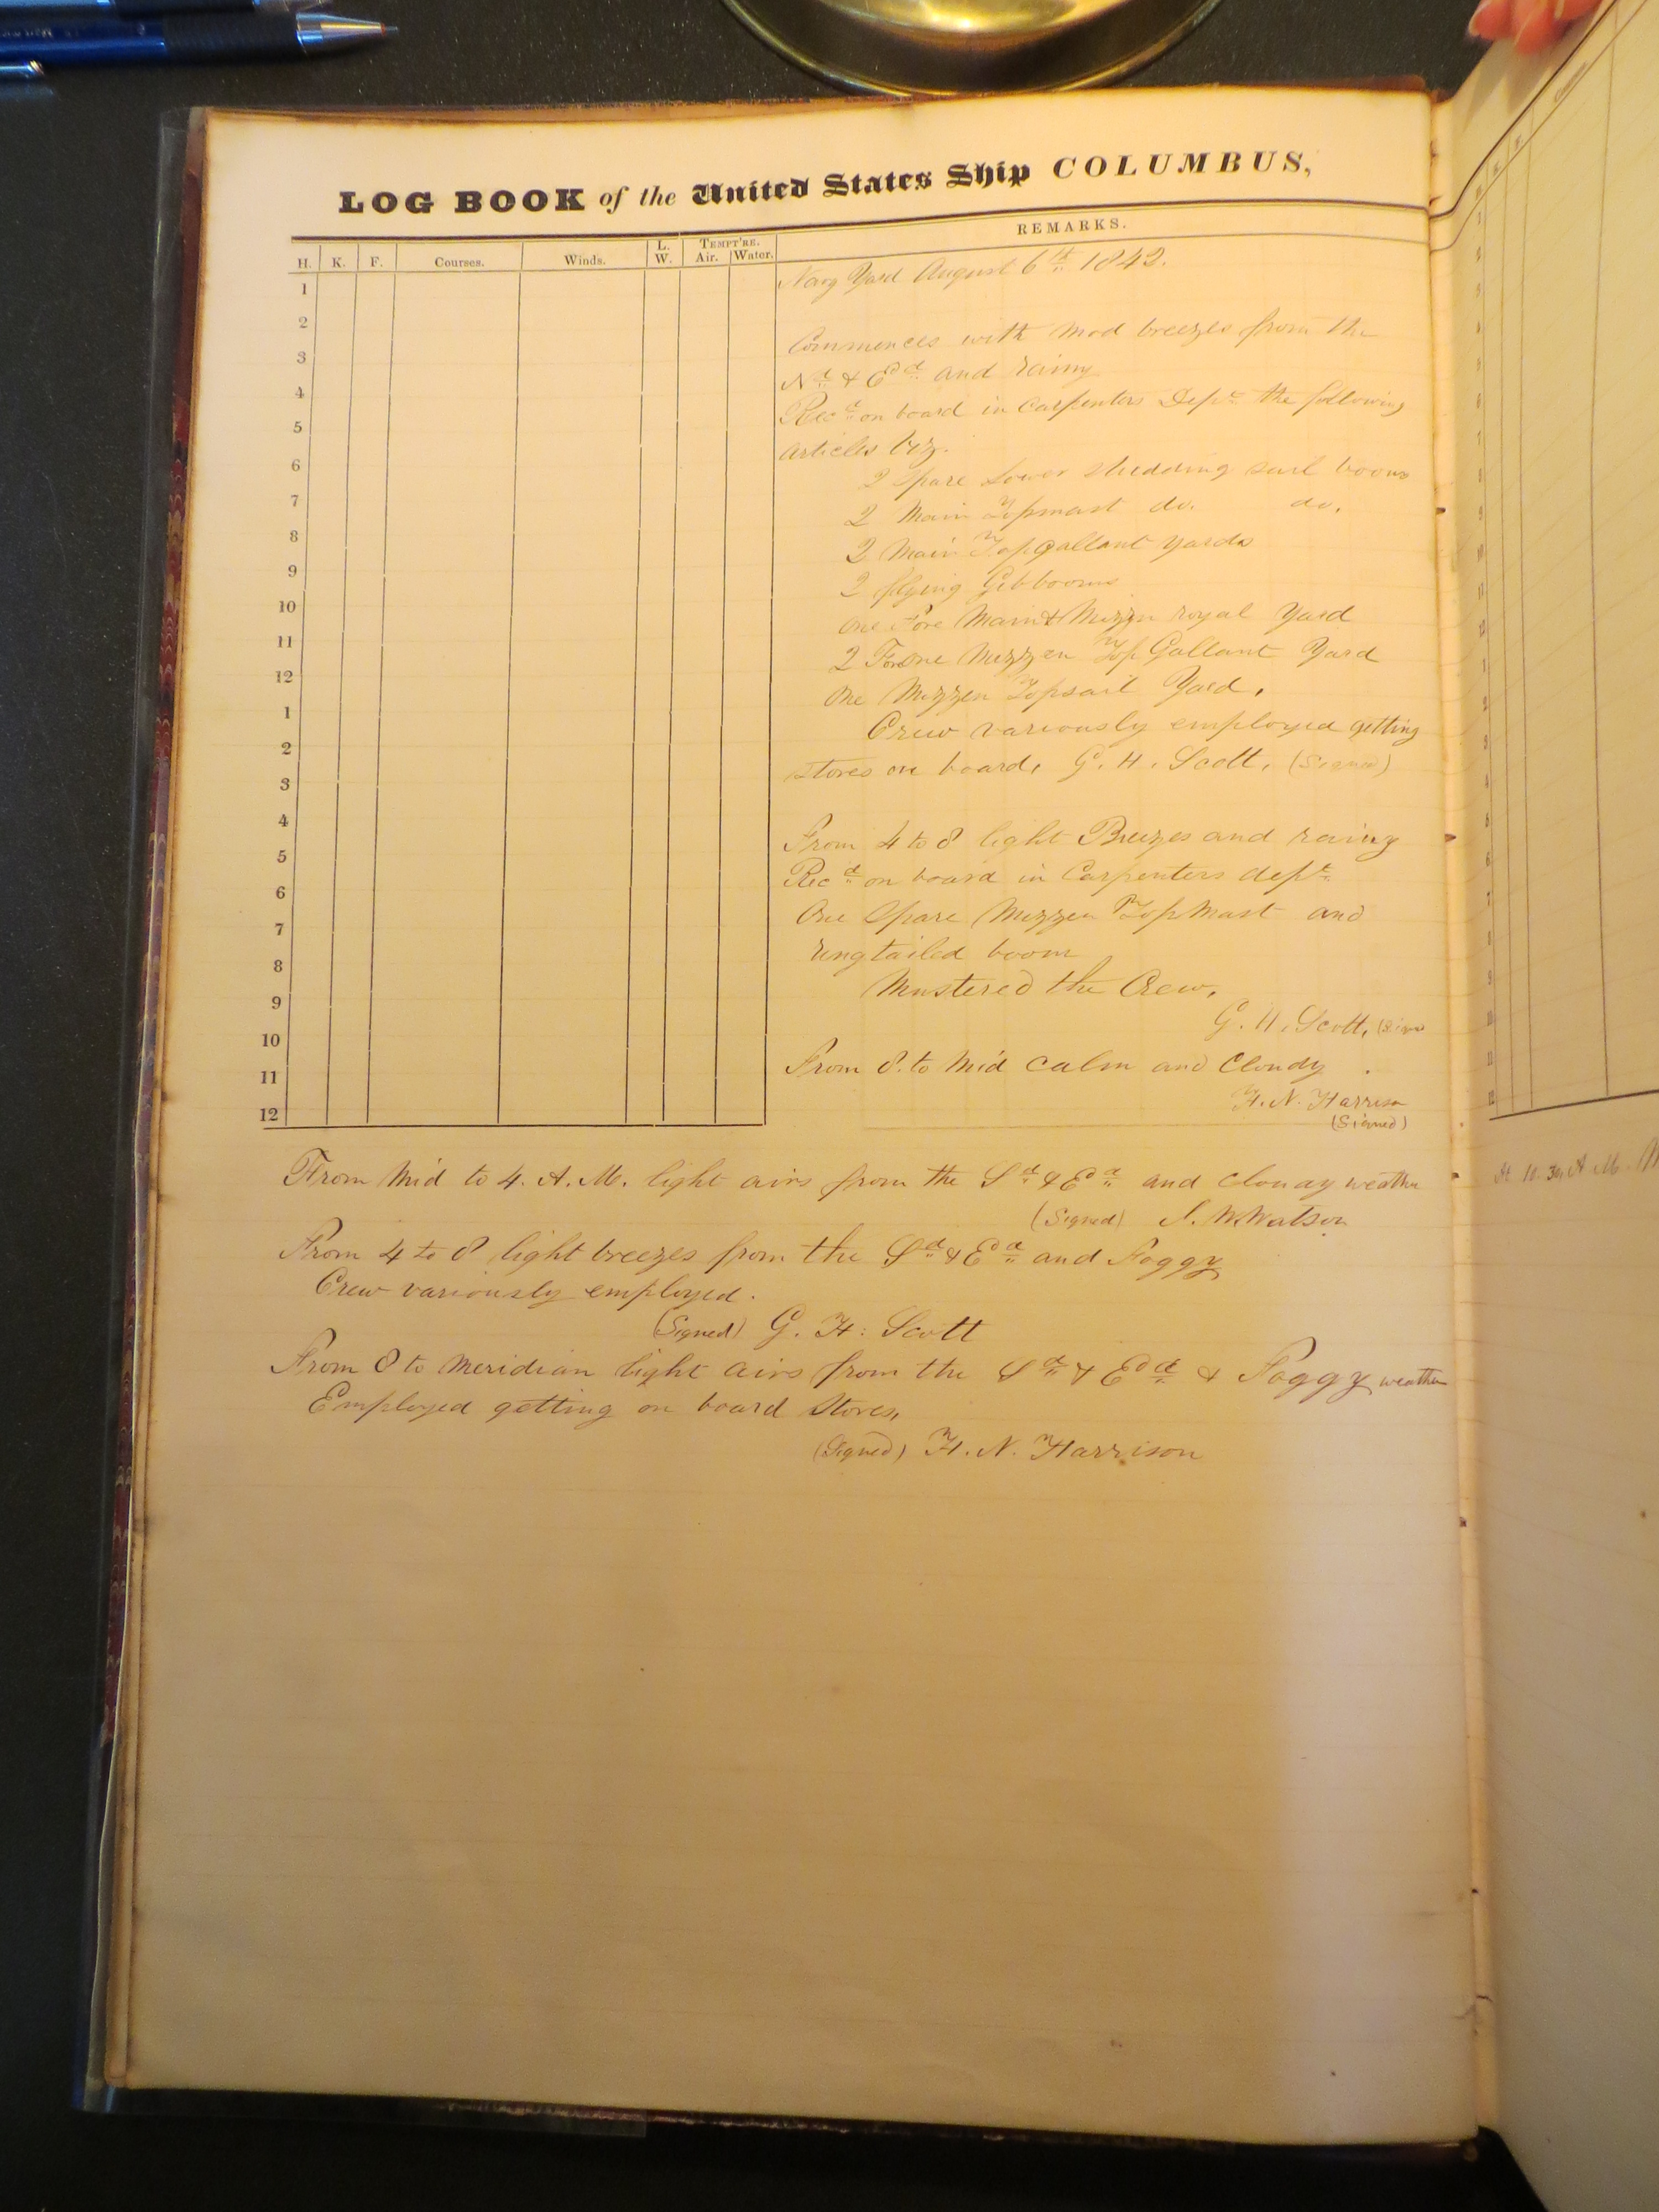 LOG BOOK of the United States Ship COLUMBUS,
H. K. F. Courses. Winds. L. W. TEMPT'RE. Air. Water. REMARKS.
1
2
3
4
5
6
7
8
9
10
11
12
1
2
3
4
5
6
7
8
9
10
11
12
Navy Yard August 6th 1842.
Commences with mod breezes from the
Nd & Ed and rainy
Recd on board in Carpenters Dept the following
articles viz.
2 Spare Lower studding sail booms
2 Main Topmast do. do.
2 Main Topgallant yards
2 flying Gibbooms
One Fore Main & Mizzn royal Yard
2 Fore One Mizzen Top Gallant Yard
One Mizzen Topsail Yard.
Crew variously employed getting
stores on board, G. H. Scott. (Signed)
From 4 to 8 light Breezes and rainy
Recd on board in Carpenters dept
One Spare Mizzen Top Mast and
ringtailed boom
Mustered the Crew,
G. H. Scott,
From 8 to Mid calm and Cloudy
H. N. Harrison
(Signed)
From Mid to 4. A.M. light airs from the Sd & Ed and cloudy weather
(Signed) J. W. Watson
From 4 to 8 light breezes from the Sd & Ed and Foggy
Crew variously employed.
(Signed) G. H: Scott
From 8 to Meridian light airs from the Sd & Ed & Foggy weather
Employed getting on board Stores,
(Signed) H. N. Harrison
At 10.30, A.M.